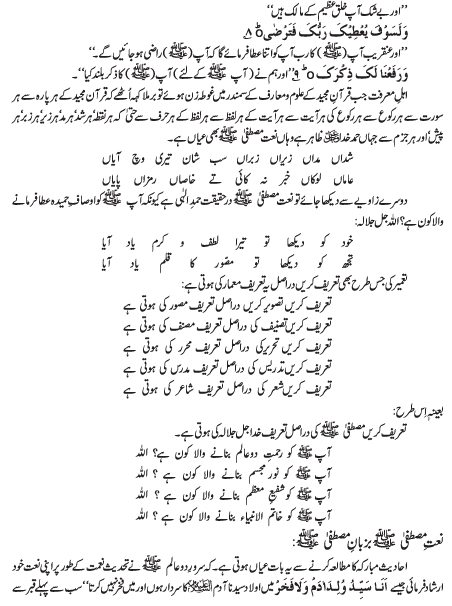 ’’اور بے شک آپ خلقِ عظیم کے مالک ہیں‘‘
وَلَسَوْفَ یُعْطِیْکَ رَبُّکَ فَتَرْضٰی o ۸
’’اور عنقریب آپ (ﷺ) کا رب آپ کو اتنا عطا فرمائے گا کہ آپ (ﷺ) راضی ہو جائیں گے۔‘‘
وَرَفَعْنَا لَکَ ذِکْرَکَ o ۹ ’’اور ہم نے (آپ ﷺ کے لئے) آپ (ﷺ) کا ذکر بلند کیا‘‘۔
اہلِ معرفت جب قرآنِ مجید کے علوم و معارف کے سمندر میں غوطہ زن ہوئے تو برملا کہہ اُٹھے کہ قرآنِ مجید کے ہر پارہ سے ہر
سورت سے ہر رکوع سے ہر رکوع کی ہر آیت سے ہر آیت کے ہر لفظ سے ہر لفظ کے ہر حرف سے حتیٰ کہ ہر نقطہ ہر شد ہر مد ہر زیر ہر زبر ہر
پیش اور ہر جزم سے جہاں حمدِ خدا ظاہر ہے وہاں نعتِ مصطفیٰ ﷺ بھی عیاں ہے۔
شداں مداں زیراں زبراں سب شان تیری وچ آیاں
عاماں لوکاں خبر نہ کائی تے خاصاں رمزاں پایاں
دوسرے زاویے سے دیکھا جائے تو نعتِ مصطفیٰ ﷺ در حقیقت حمدِ الٰہی ہے کیونکہ آپ ﷺ کو اوصافِ حمیدہ عطا فرمانے
والا کون ہے؟ اللہ جل جلالہ:
خود کو دیکھا تو تیرا لطف و کرم یاد آیا
تجھ کو دیکھا تو مصور کا قلم یاد آیا
تعمیر کی جس طرح بھی تعریف کریں دراصل یہ تعریف معمار کی ہوتی ہے:
تعریف کریں تصویر کریں دراصل تعریف مصور کی ہوتی ہے
تعریف کریں تصنیف کی دراصل تعریف مصنف کی ہوتی ہے
تعریف کریں تحریر کی دراصل تعریف محرر کی ہوتی ہے
تعریف کریں تدریس کی دراصل تعریف مدرس کی ہوتی ہے
تعریف کریں شعر کی دراصل تعریف شاعر کی ہوتی ہے
بعینہٖ اِس طرح:
تعریف کریں مصطفیٰ ﷺ کی دراصل تعریف خدا جل جلالہ کی ہوتی ہے۔
آپ ﷺ کو رحمتِ دو عالم بنانے والا کون ہے؟ اللہ
آپ ﷺ کو نورِ مجسم بنانے والا کون ہے ؟ اللہ
آپ ﷺ کو شفیعِ معظم بنانے والا کون ہے ؟ اللہ
آپ ﷺ کو خاتم الانبیاء بنانے والا کون ہے ؟ اللہ
نعتِ مصطفیٰ ﷺ بزبانِ مصطفیٰ ﷺ:
احادیثِ مبارکہ کا مطالعہ کرنے سے یہ بات عیاں ہوتی ہے کہ سرورِ دو عالم ﷺ نے تحدیثِ نعمت کے طور پر اپنی نعت خود
ارشاد فرمائی جیسے اَنَا سَیِّدُ وُلْدِ اٰدَمَ وَلَا فَخْرَ میں اولادِ سیدنا آدم علیہ السلام کا سردار ہوں اور میں فخر نہیں کرتا‘‘ سب سے پہلے قبر سے